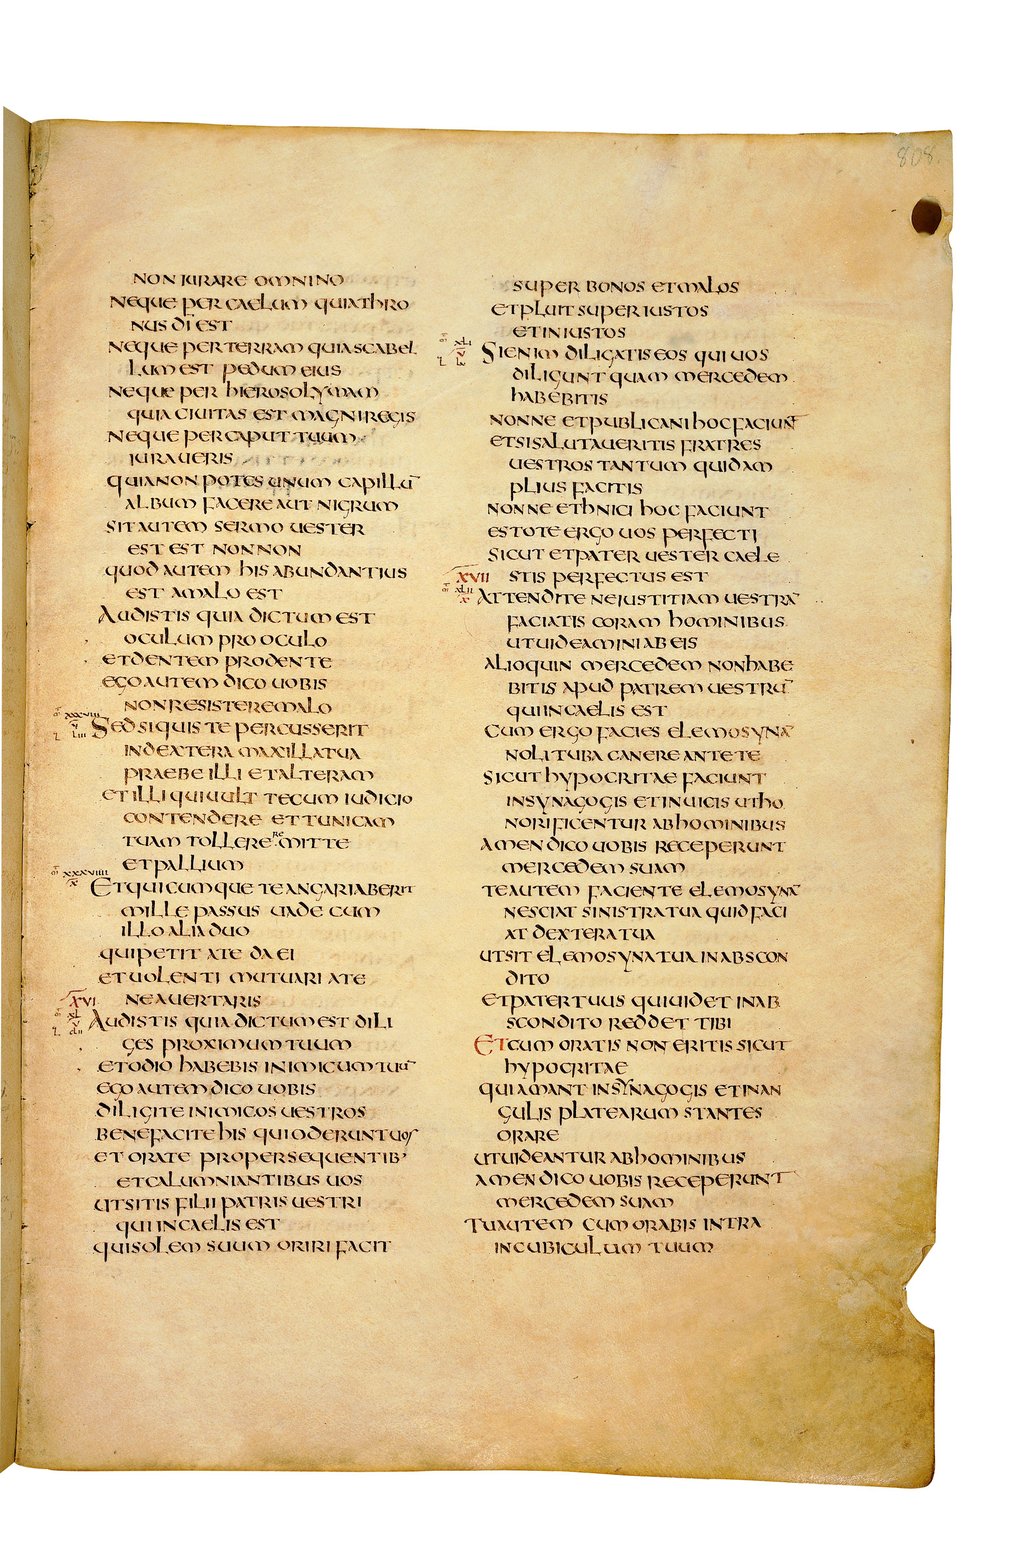 808
NON IURARE OMNINO
NEQUE PER CAELUM QUIA THRO
NUS D̅I EST
NEQUE PER TERRAM QUIA SCABEL
LUM EST PEDUM EIUS
NEQUE PER HIEROSOLYMAM
QUIA CIUITAS EST MAGNI REGIS
NEQUE PER CAPUT TUUM
IURAUERIS
QUIA NON POTES UNUM CAPILLŪ
ALBUM FACERE AUT NIGRUM
SIT AUTEM SERMO UESTER
EST EST NON NON
QUOD AUTEM HIS ABUNDANTIUS
EST A MALO EST
AUDISTIS QUIA DICTUM EST
OCULUM PRO OCULO
ET DENTEM PRO DENTE
EGO AUTEM DICO UOBIS
NON RESISTERE MALO
XXXVIII
V
L LIII
SED SI QUIS TE PERCUSSERIT
IN DEXTERA MAXILLA TUA
PRAEBE ILLI ET ALTERAM
ET ILLI QUI UULT TECUM IUDICIO
CONTENDERE ET TUNICAM
TUAM TOLLERE REMITTE
ET PALLIUM
XXXVIIII
X
ET QUICUMQUE TE ANGARIABERIT
MILLE PASSUS UADE CUM
ILLO ALIA DUO
QUI PETIT A TE DA EI
ET UOLENTI MUTUARI A TE
XVI NE AUERTARIS
XL
V
L
AUDISTIS QUIA DICTUM EST DILI
GES PROXIMUM TUUM
ET ODIO HABEBIS INIMICUM TUŪ
EGO AUTEM DICO UOBIS
DILIGITE INIMICOS UESTROS
BENEFACITE HIS QUI ODERUNT UOS
ET ORATE PRO PERSEQUENTIB'
ET CALUMNIANTIBUS UOS
UT SITIS FILII PATRIS UESTRI
QUI IN CAELIS EST
QUI SOLEM SUUM ORIRI FACIT
SUPER BONOS ET MALOS
ET PLUIT SUPER IUSTOS
ET INIUSTOS
XLI
V
L LV
SI ENIM DILIGATIS EOS QUI UOS
DILIGUNT QUAM MERCEDEM
HABEBITIS
NONNE ET PUBLICANI HOC FACIUNT
ET SI SALUTAUERITIS FRATRES
UESTROS TANTUM QUID AM
PLIUS FACITIS
NONNE ETHNICI HOC FACIUNT
ESTOTE ERGO UOS PERFECTI
SICUT ET PATER UESTER CAELE
XVII STIS PERFECTUS EST
XLII
X
ATTENDITE NE IUSTITIAM UESTRĀ
FACIATIS CORAM HOMINIBUS
UT UIDEAMINI AB EIS
ALIOQUIN MERCEDEM NON HABE
BITIS APUD PATREM UESTRŪ
QUI IN CAELIS EST
CUM ERGO FACIES ELEMOSYNĀ
NOLI TUBA CANERE ANTE TE
SICUT HYPOCRITAE FACIUNT
IN SYNAGOGIS ET IN UICIS UT HO
NORIFICENTUR AB HOMINIBUS
AMEN DICO UOBIS RECEPERUNT
MERCEDEM SUAM
TE AUTEM FACIENTE ELEMOSYNĀ
NESCIAT SINISTRA TUA QUID FACI
AT DEXTERA TUA
UT SIT ELEMOSYNA TUA IN ABSCON
DITO
ET PATER TUUS QUI UIDET IN AB
SCONDITO REDDET TIBI
ET CUM ORATIS NON ERITIS SICUT
HYPOCRITAE
QUI AMANT IN SYNAGOGIS ET IN AN
GULIS PLATEARUM STANTES
ORARE
UT UIDEANTUR AB HOMINIBUS
AMEN DICO UOBIS RECEPERUNT
MERCEDEM SUAM
TU AUTEM CUM ORABIS INTRA
IN CUBICULUM TUUM